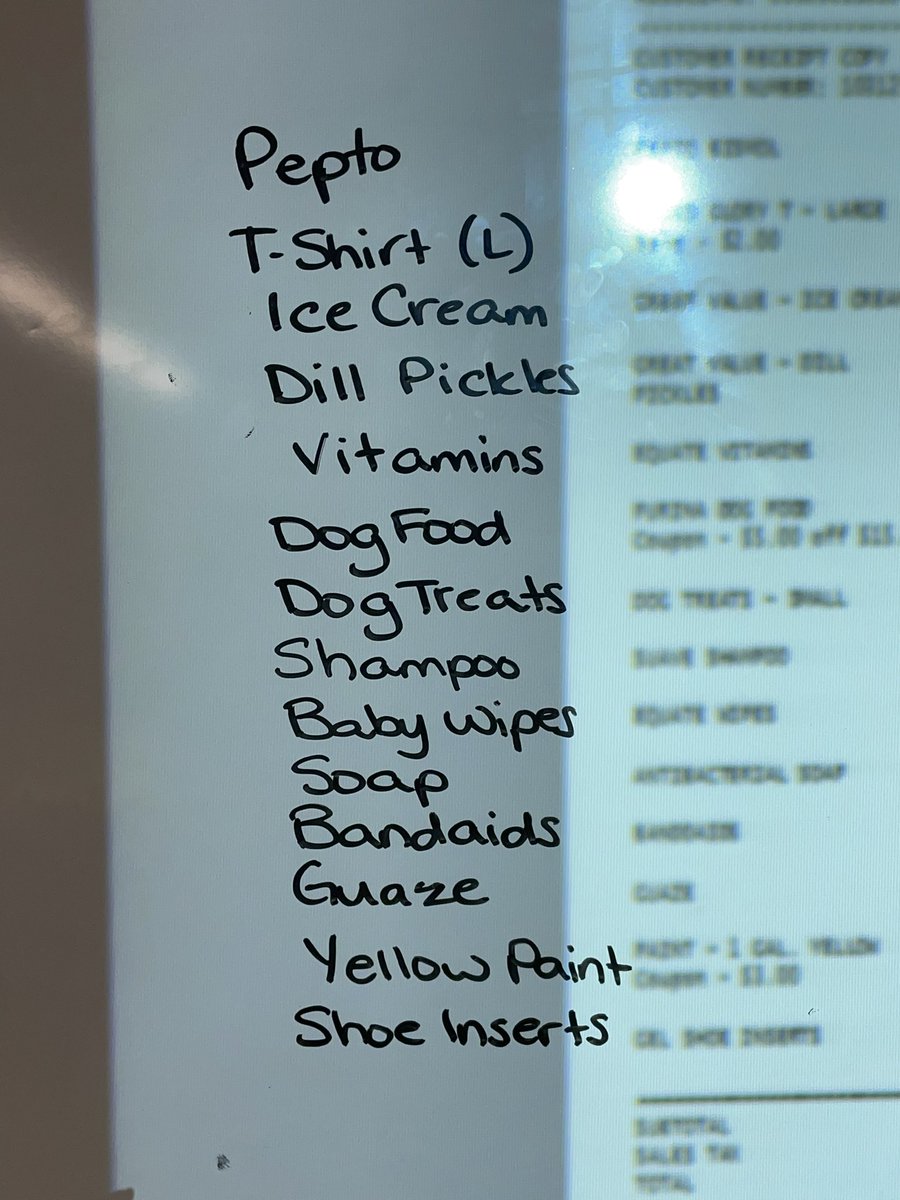 CUSTOMER RECEIPT COPY
CUSTOMER NUMBER:
Pepto
BISMOL
T-Shirt (L)
GLORY T - LARGE
- $2.00
Ice Cream
GREAT VALUE - ICE CREA
Dill Pickles
GREAT VALUE - DILL
PICKLES
Vitamins
EQUATE VITAMINS
Dog Food
PURINA DOG FOOD
Coupon - $5.00 off $15.
Dog Treats
DOG TREATS - SMALL
Shampoo
SUAVE SHAMPOO
Baby Wipes
EQUATE WIPES
Soap
ANTIBACTERIAL SOAP
Bandaids
BANDAIDS
Guaze
GUAZE
Yellow Paint
PAINT - 1 GAL. YELLOW
Coupon - $3.00
Shoe Inserts
GEL SHOE INSERTS
SUBTOTAL
SALES TAX
TOTAL